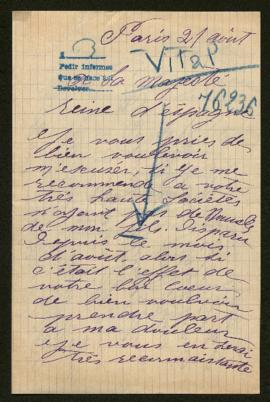 Paris 21 août
A 3
Vital
Pedir informes
que se hace
Devolver
a sa majesté
76236
reine d'espagne
Je vous pries de
bien vouloir
m'excuser, si je me
recommende a votre
très haute
n'ayant pas de
de mon fils Disparu
Depuis le mois
d'août, alors si
c'était l'effet de
votre bon coeur
de bien vouloir
prendre part
a ma douleur
je vous en serai
très reconnaissante